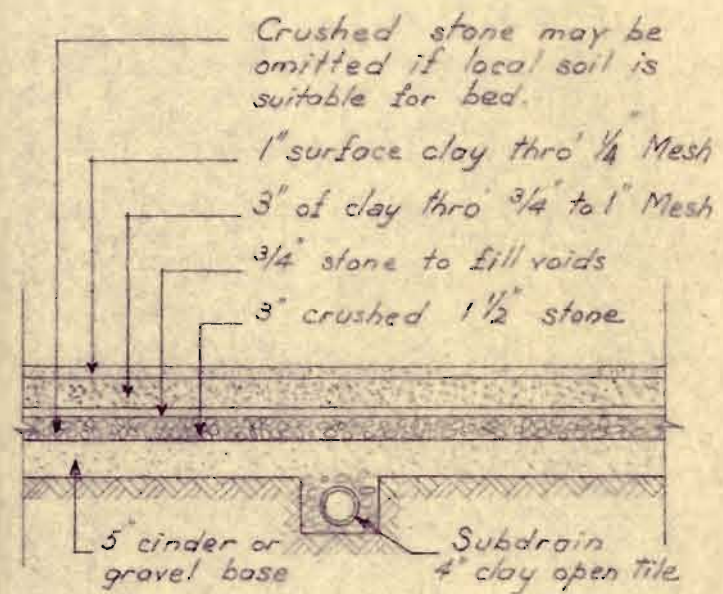 Crushed stone may be
omitted if local soil is
suitable for bed.
1" surface clay thro' 1/4" Mesh
3" of clay thro' 3/4" to 1" Mesh
3/4" stone to fill voids
3" crushed 1 1/2" stone
5" cinder or
gravel base
Subdrain
4" clay open tile